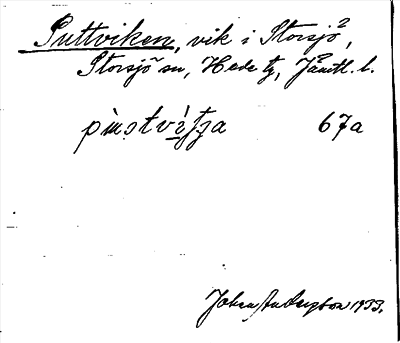 Puttviken, vik i Storsjö,
Storsjö sn, Hede tg, Jämtl. l.
67a
Johan 1933.